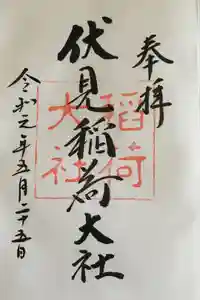 奉拝
伏見稲荷大社
稲荷
大社
令和元年五月二十五日